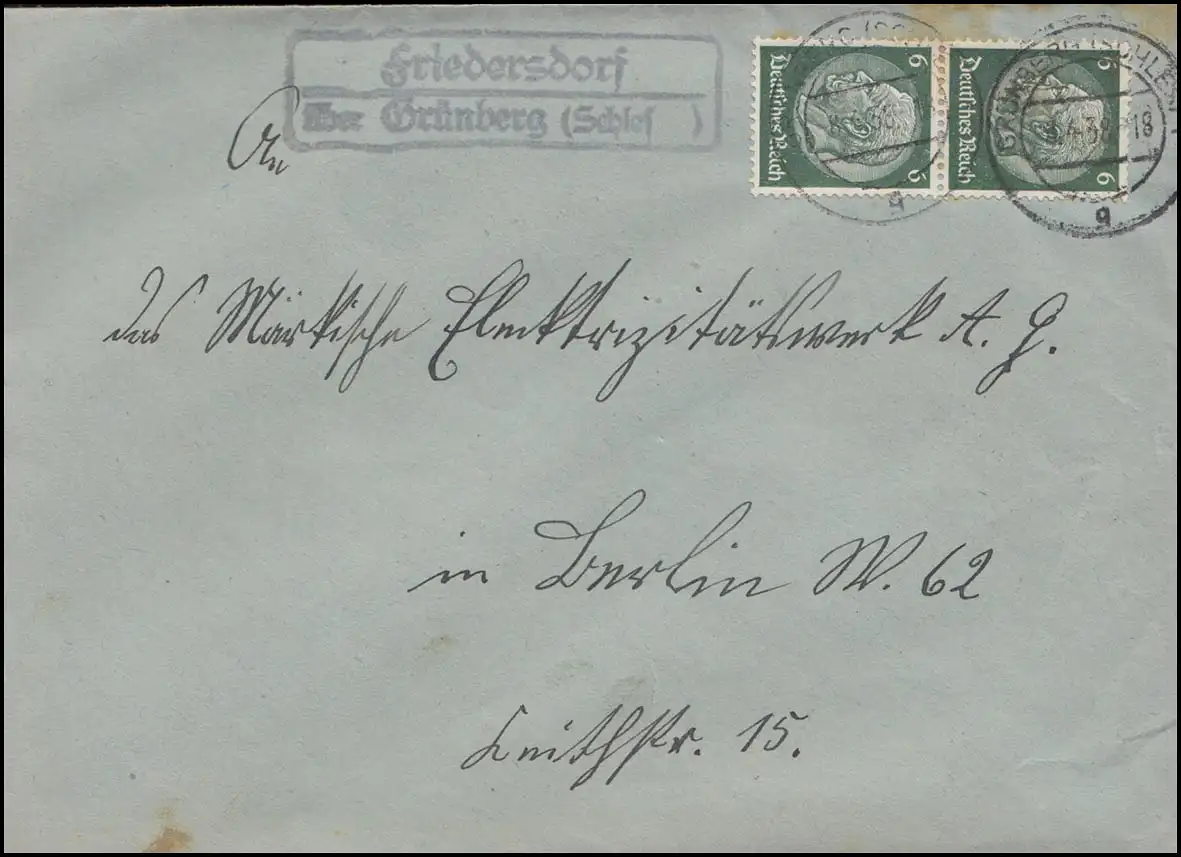 Friedersdorf
über Grünberg (Schles )
6 Deutsches Reich 6
6 Deutsches Reich 6
GRÜNBERG (SCHLES
38-18
g
g
An
das Märkische Elecktrizitätswerk A. G.
in Berlin W. 62
Keithstr. 15.